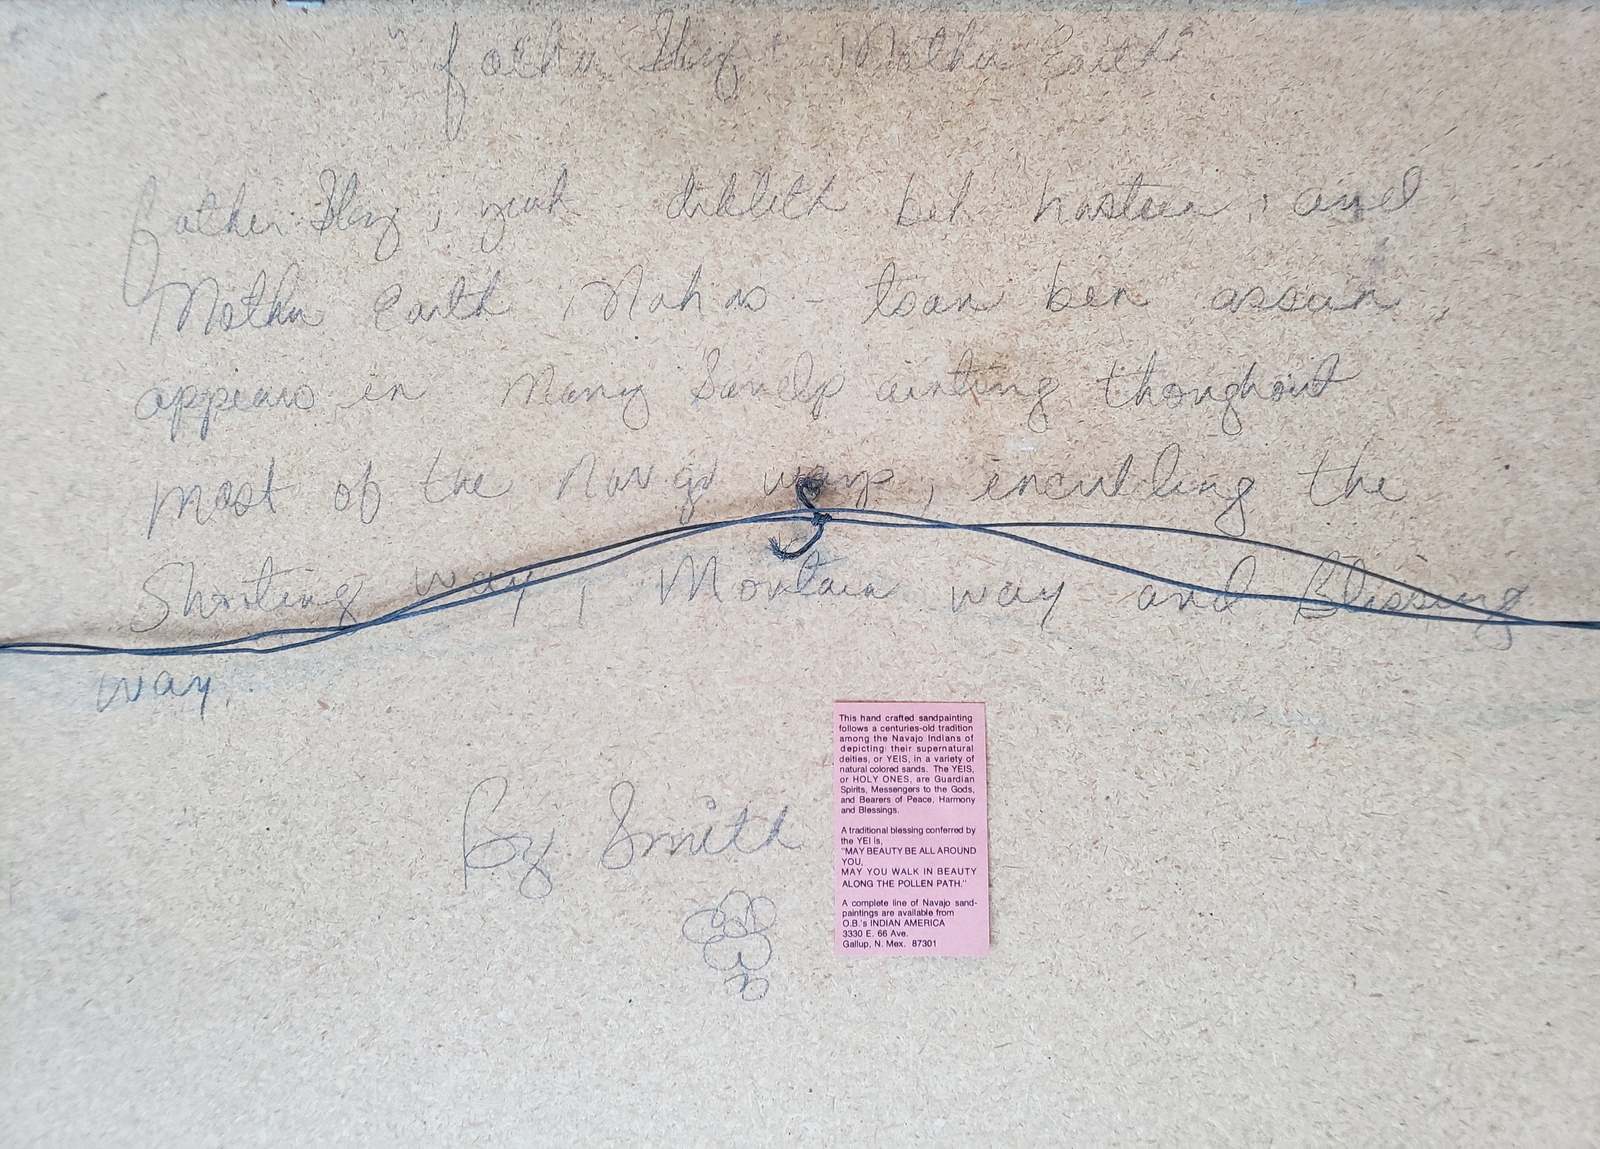 "father Sky & Mother Earth"
father Sky, yah diklith beh hasteen, and
Mother Earth Nahas - tsan ben assun,
appears in Many Sandpainting thoughout
most of the Navajo ways, enculding the
Shooting way, Montain way and Blissing
way.
By Smith
This hand crafted sandpainting
follows a centuries-old tradition
among the Navajo Indians of
depicting their supernatural
deities, or YEIS, in a variety of
natural colored sands. The YEIS,
or HOLY ONES, are Guardian
Spirits, Messengers to the Gods,
and Bearers of Peace, Harmony
and Blessings.
A traditional blessing conferred by
the YEI is,
"MAY BEAUTY BE ALL AROUND
YOU,
MAY YOU WALK IN BEAUTY
ALONG THE POLLEN PATH."
A complete line of Navajo sand-
paintings are available from
O.B.'s INDIAN AMERICA
3330 E. 66 Ave.
Gallup, N. Mex. 87301